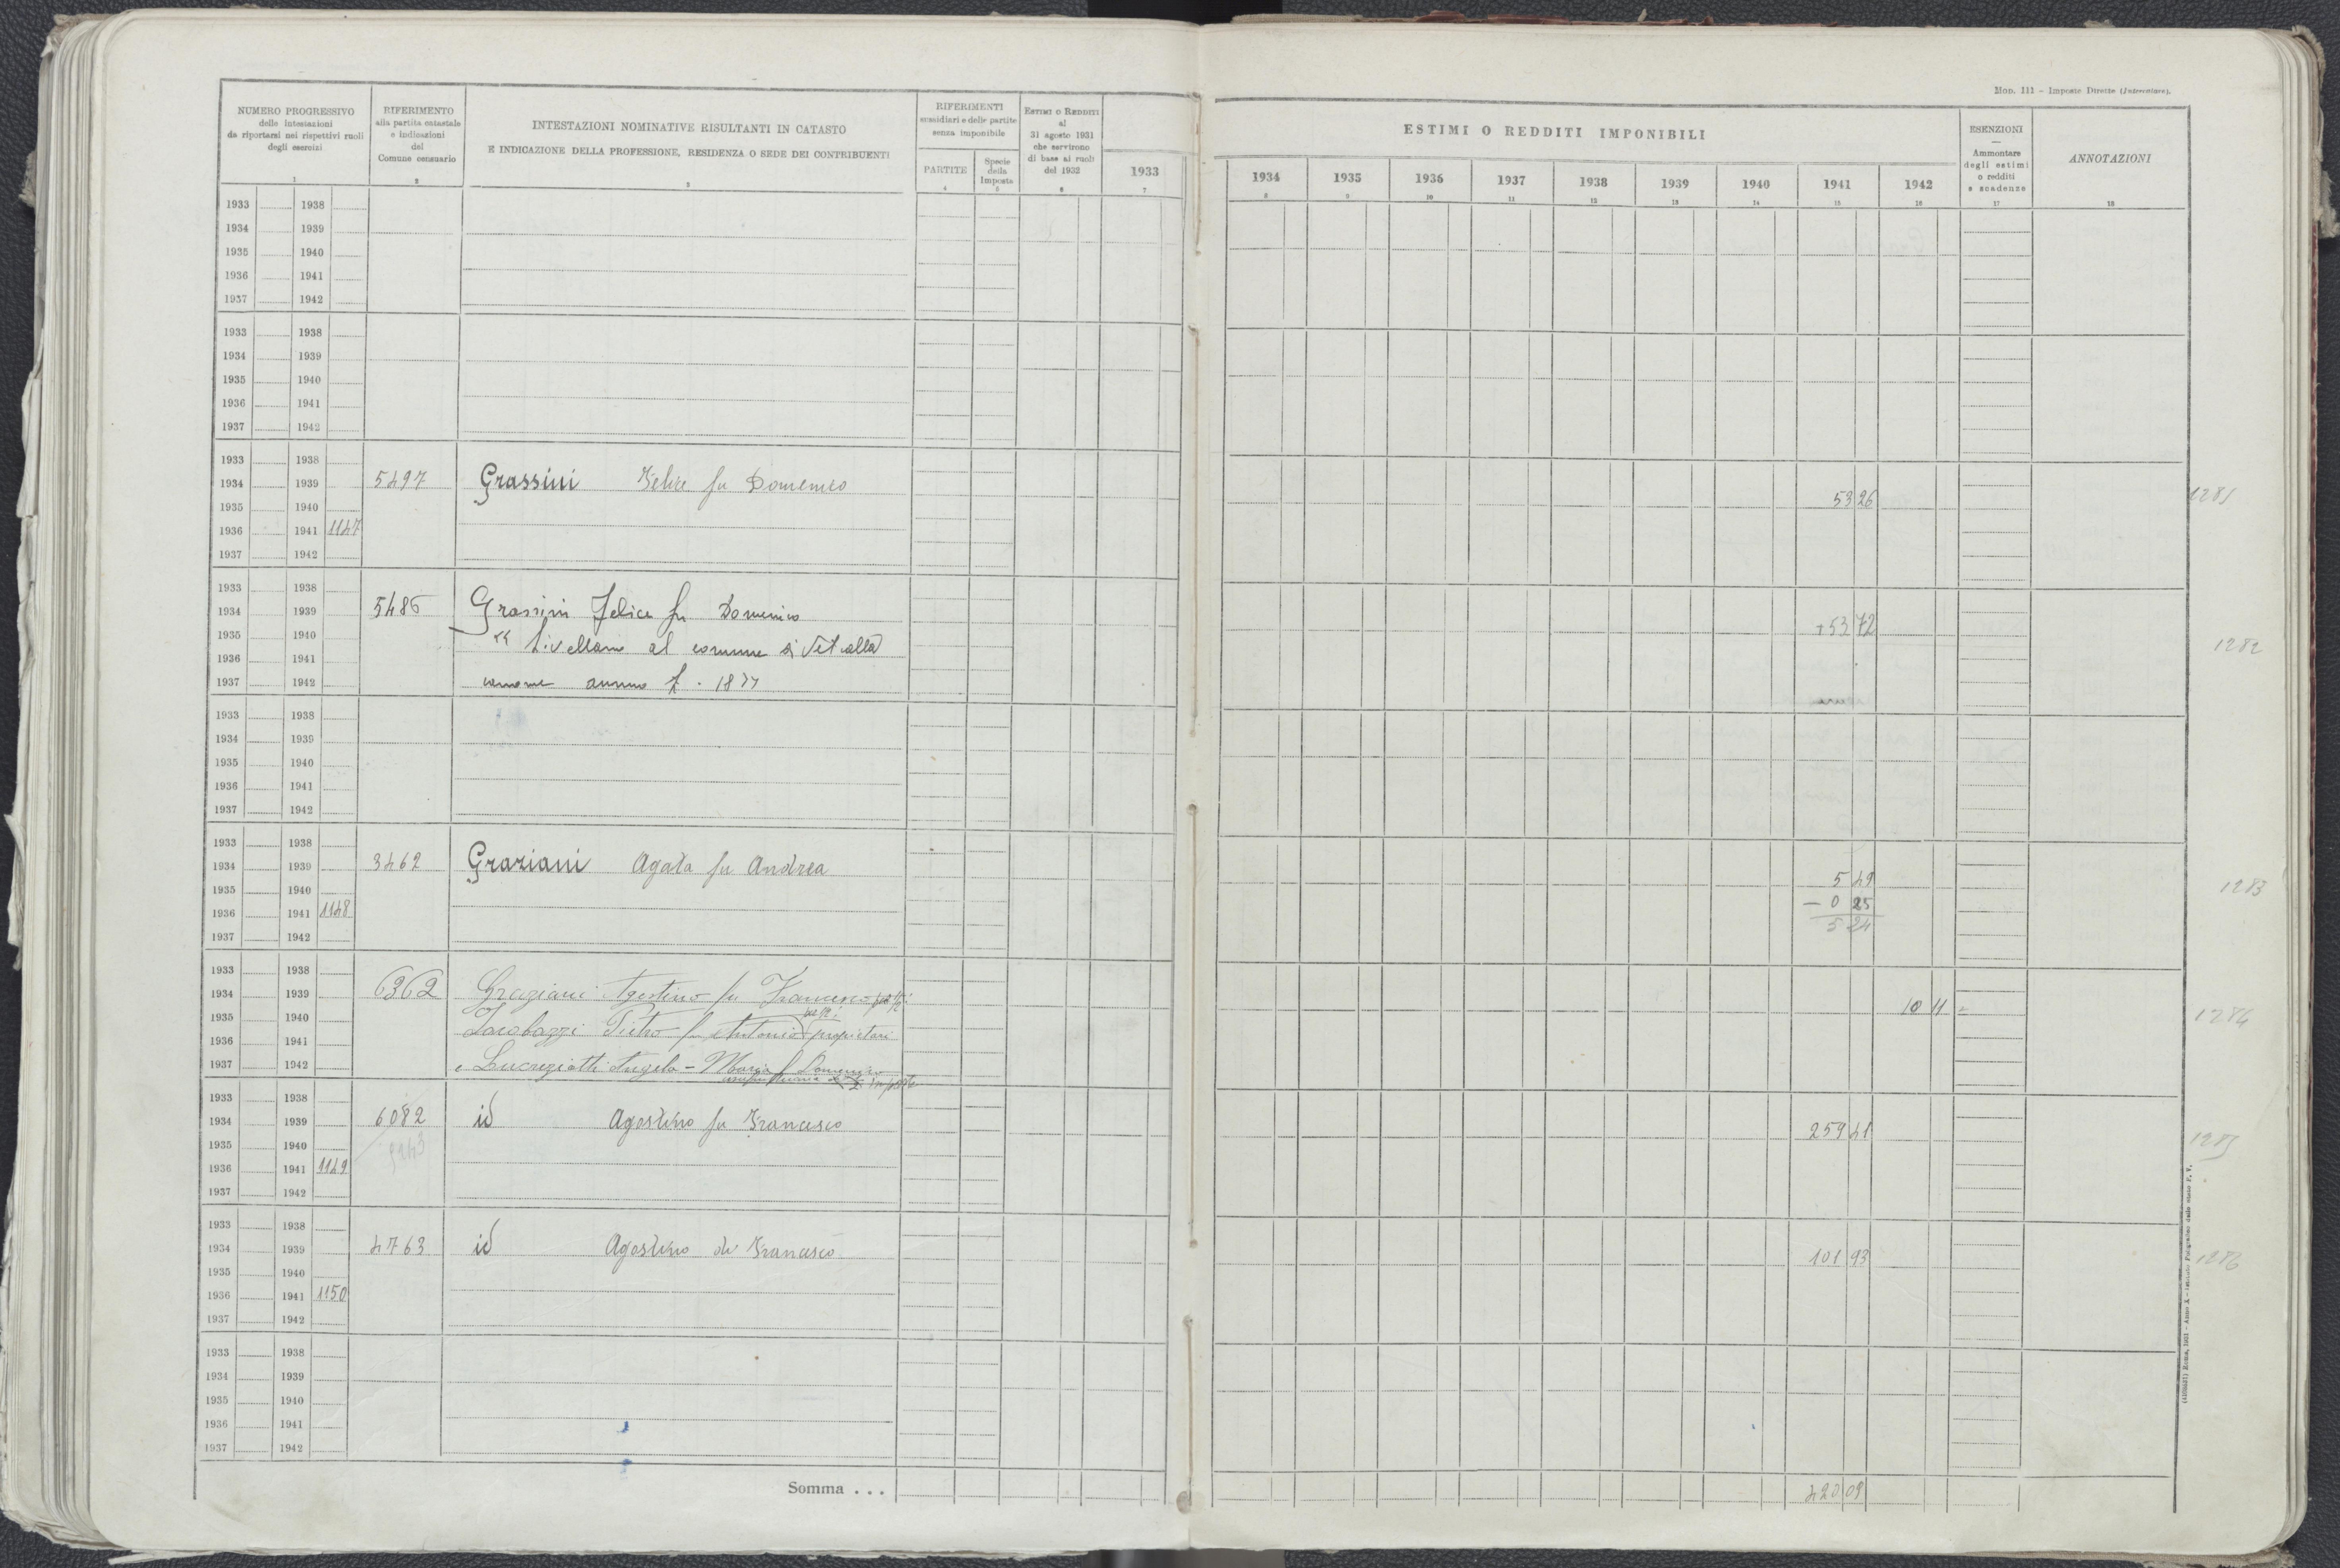 Mod. 111 – Imposte Dirette (Intercalare).
NUMERO PROGRESSIVO
delle intestazioni
da riportarsi nei rispettivi ruoli
degli esercizi
1
RIFERIMENTO
alla partita catastale
e indicazioni
del
Comune censuario
2
INTESTAZIONI NOMINATIVE RISULTANTI IN CATASTO
E INDICAZIONE DELLA PROFESSIONE, RESIDENZA O SEDE DEI CONTRIBUENTI
3
RIFERIMENTI
sussidiari e delle partite
senza imponibile
PARTITE
4
Specie
della
Imposta
5
ESTIMI O REDDITI
al
31 agosto 1931
che servirono
di base ai ruoli
del 1932
6
1933
7
ESTIMI O REDDITI IMPONIBILI
1934 1935 1936 1937 1938 1939 1940 1941 1942
8 9 10 11 12 13 14 15 16
ESENZIONI
—
Ammontare
degli estimi
o redditi
e scadenze
17
ANNOTAZIONI
18
1933 1938
1934 1939
1935 1940
1936 1941
1937 1942
1933 1938
1934 1939
1935 1940
1936 1941
1937 1942
1933 1938
1934 1939 5497 Grassini Felice fu Domenico 53 26
1935 1940
1936 1941 1147
1937 1942
1933 1938
1934 1939 5486 Grassini Felice fu Domenico +53 72
1935 1940 livellario al comune di Vetralla 1282
1936 1941
1937 1942 canone annuo
1933 1938
1934 1939
1935 1940
1936 1941
1937 1942
1933 1938
1934 1939 3462 Graziani Agata fu Andrea 5 49 1283
1935 1940
1936 1941 1148 – 0 25
1937 1942 5 24
1933 1938
1934 1939 6362 Graziani Agostino fu Francesco 10 11 =
1935 1940 Pietro fu Antonio proprietari 1284
1936 1941
1937 1942 Angela - Maria fu Domenico
1933 1938
1934 1939 6082 id Agostino fu Francesco 259 41 1285
1935 1940
1936 1941 1149
1937 1942
1933 1938
1934 1939 4763 id Agostino di Francesco 101 93 1286
1935 1940
1936 1941 1150
1937 1942
1933 1938
1934 1939
1935 1940
1936 1941
1937 1942
Somma . . . 420 09